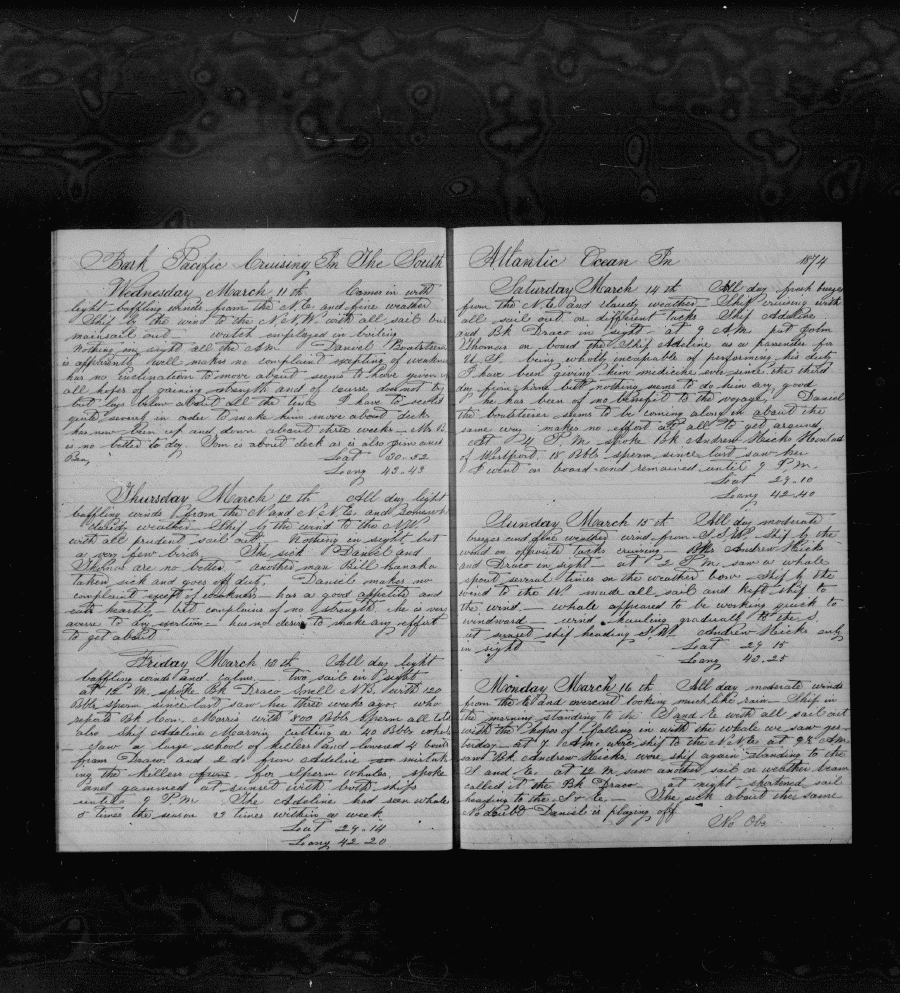 Bark Pacific Cruising In The South
Wednesday March 11th Comes in with
light baffling winds from the N E and fine weather
Ship by the wind to the N & W. with all sail but
mainsail out watch employed in boiling
Nothing in sight all the A.M. Daniel Boatsteerer
is apparently well makes no complaint excepting of weakness
has no inclination to move about seems to have given up
all hopes of gaining strength and of course does not try
but lays down about all the time I have to scold
quite severe in order to make him move about deck
has now been up and down about three weeks Mr B.
is no better to day Tom is about deck as is also
Ben Lat 30-52
Long 43-43
Thursday March 12th All day light
baffling winds from the N and N E and Somewh
cloudy weather Ship by the wind to the N W.
with all prudent sail out Nothing in sight but
a very few birds The sick Daniel and
Thomas are no better another man Bill kanaka
taken sick and goes off duty. Daniel makes no
complaint except of weakness has a good appetite and
eats heartily but complains of no strength he is very
averse to any exertion has no desire to make any effort
to get about
Friday March 13th All day light
baffling winds and calms two sail in sight
at 12 M. spoke Bk Draco Snell N B. with 120
Bbls sperm since last saw her three weeks ago. who
reports Bk Gov. Morris with 800 Bbls Sperm all told
also Ship Adeline Marvin cutting a 40 Bbls whale
Saw a large school of killers and lowered 4 boats
from Draco and 2 do from Adeline mistak
ing the killers for Sperm whales, spoke
and gammed at sunset with both ships
until 9 P.M The Adeline had seen whales
5 times the season 3 times within a week
Lat 29-14
Long 42-20
Atlantic Ocean In 1874
Saturday March 14th All day fresh breeze
from the N E and cloudy weather Ship cruising with
all sail out on different tacks Ship Adeline
and Bk Draco in sight at 9 A.M. put John
Thomas on board the Ship Adeline as a passenger for
U.S. being wholly incapable of performing his duty
I have been giving him medicine ever since the third
day from home but nothing seems to do him any good
he has been of no benefit to the voyage. Daniel
the boatsteerer seems to be coming along in about the
same way makes no effort at all to get around
At 4 P.M. spoke Bk Andrew Hicks
of Westport 18 Bbls sperm since last saw her
I went on board and remained until 9 P.M.
Lat 29-10
Long 42-40
Sunday March 15th All day moderate
breeze and fine weather wind from S S W. Ship by the
wind on opposite tacks cruising Bks Andrew Hicks
and Draco in sight at 2 P.M. saw a whale
spout several times on the weather bow Ship by the
wind to the W. made all sail and kept ship to
the wind. whale appeared to be working quick to
windward wind hauling gradually to the S.
at sunset ship heading S W. Andrew Hicks only
in sight Lat 29-15
Long 43-25
Monday March 16th All day moderate winds
from the E and overcast looking much like rain Ship in
the morning standing to the S and E with all sail out
with the hopes of falling in with the whale we saw yes
terday at 7 A.M. wore ship to the N E at 9½ A.M.
saw Bk Andrew Hicks. wore ship again standing to the
S and E. at 12 M. saw another sail on weather beam
called it the Bk Draco at night shortened sail
heading to the S & E The sick about the same
No doubt Daniel is playing off
No Obs